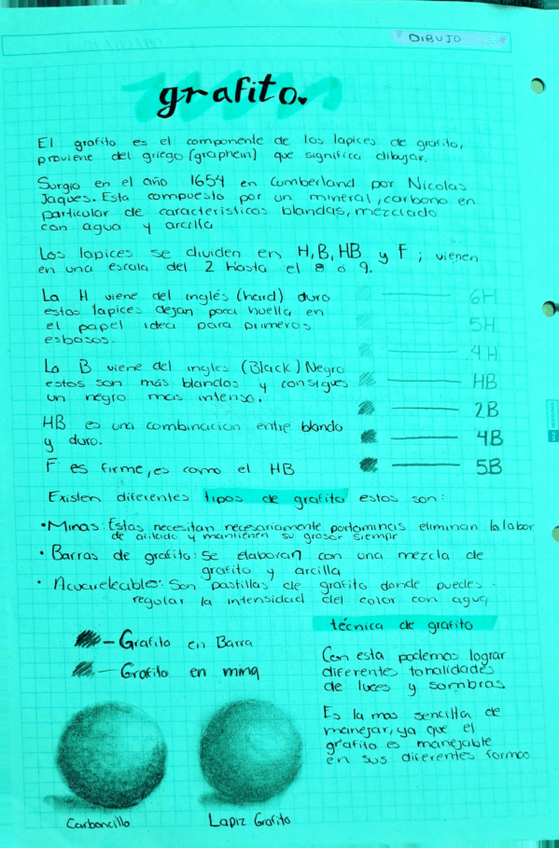 DIBUJO
grafito
El grafito es el componente de los lapices de grafito,
proviene del griego (graphein) que significa dibujar.
Surgio en el año 1654 en Cumberland por Nicolas
Jaques. Esta compuesto por un mineral, carbono en
particular de caracteristicas blandas, mezclado
con agua y arcilla
Los lapices se dividen en H, B, HB y F ; vienen
en una escala del 2 hasta el 8 ó 9.
La H viene del inglés (hard) duro
estos lapices dejan poca huella en
el papel idea para primeros
esbosos.
La B viene del ingles (Black) Negro
estos son más blandos y consigues
un negro mas intenso.
HB es una combinacion entre blando
y duro.
F es firme, es como el HB
6H
5H
4H
HB
2B
4B
5B
Existen diferentes tipos de grafito estos son:
• Minas: Estas necesitan necesariamente portaminas eliminan la labor
de afilado y mantienen su grosor siempr
• Barras de grafito: Se elaboran con una mezcla de
grafito y arcilla
• Acuarelecibles: Son pastillas de grafito donde puedes
regular la intensidad del color con agua,
– Grafito en Barra
– Grafito en mina
Carboncillo
Lapiz Grafito
técnica de grafito
Con esta podemos lograr
diferentes tonalidades
de luces y sombras
Es la mas sencilla de
manejar, ya que el
grafito es manejable
en sus diferentes formas